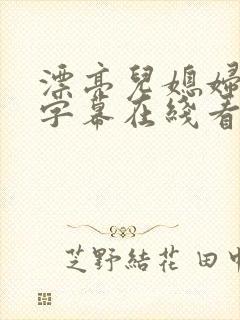 漂亮兒媳婦
字幕在綫看
芝野結花 田中